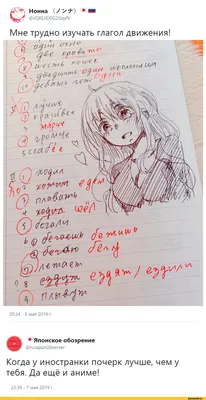 Нонна (ノンナ)
@JQREXD0G2GqsfV
Мне трудно изучать глагол движения!
один окно
две кровати
шесть кошек
девять лет
лучше
красивее
громче
слабее
ходил
хотим едем
плавать
ходил шёл
бегали
бегаешь бежишь
бегаю бегу
летает
ездут ездят / ездили
плывут
20:24 - 6 мая 2019 г.
Японское обозрение
@ruJapanObserver
Когда у иностранки почерк лучше, чем у тебя. Да ещё и аниме!
22:39 - 7 мая 2019 г.